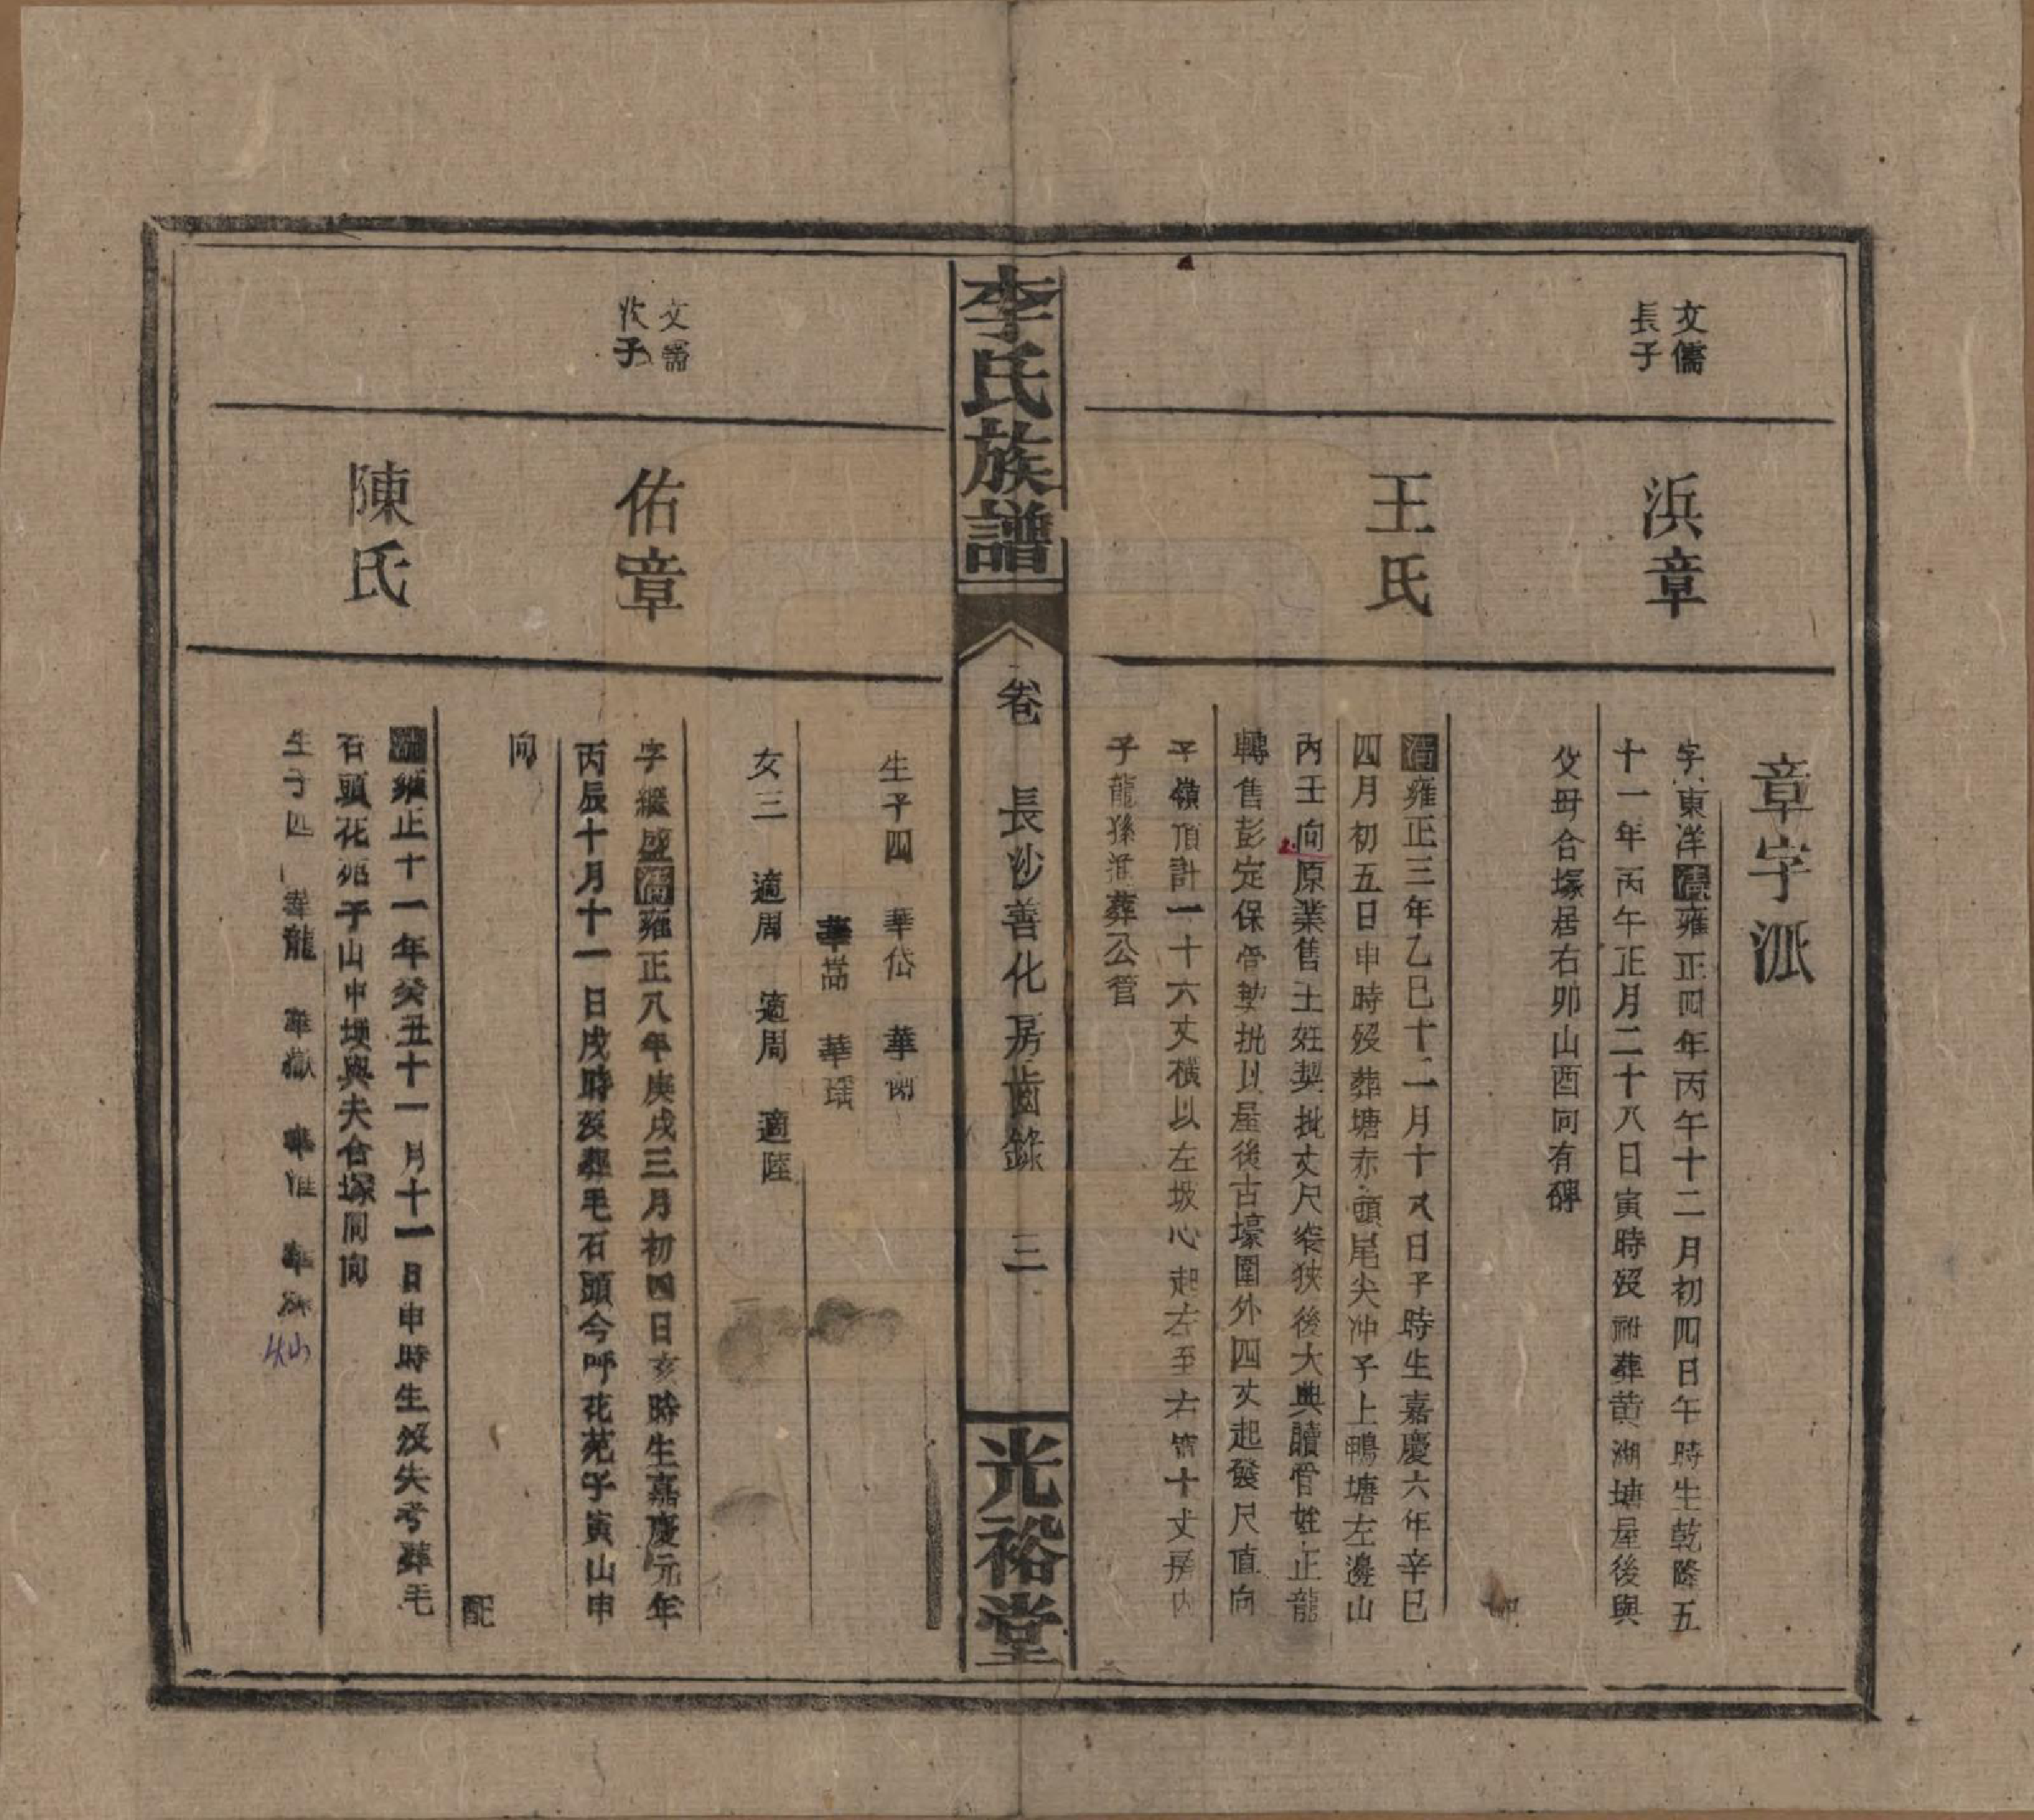 章字派
文儒
長子
浜章
字東洋清雍正四年丙午十二月初四日午時生乾隆五
十一年丙午正月二十八日寅時歿祔葬黄湖塘屋後與
父母合塚居右卯山酉向有碑
王氏
清雍正三年乙巳十二月十八日子時生嘉慶六年辛巳
四月初五日申時歿葬塘赤頭尾尖冲子上鴨塘左邊山
丙壬向原業售王姓契批丈尺窄狹後大典贖管姓正龍
轉售彭定保管契批以屋後古壕圍外四丈起發尺值向
子嶺頂計一十六丈橫以左坡心起左至右管十丈房內
子龍孫進葬公管
李氏族譜
卷
長沙善化房齒錄
三
光裕堂
生子四 華岱 華
華嵩 華瑶
女三 適周 適周 適陸
文儒
次子
佑章
字繼盛清雍正八年庚戌三月初四日亥時生嘉慶元年
丙辰十月十一日戌時歿葬毛石頭今呼花苑子寅山申
向
配
陳氏
清雍正十一年癸丑十一月十一日申時生歿失考葬毛
石頭花苑子山申塽與夫合塚同向
生子四 華龍 華嶽 華 華